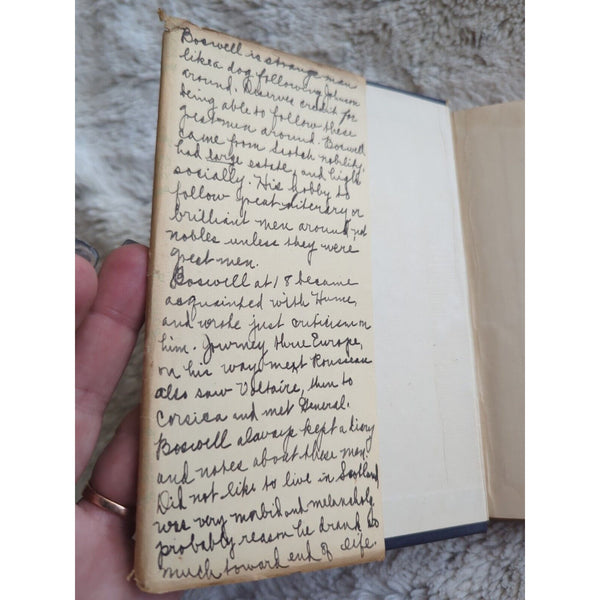 Boswell is strange man
like a dog following Johnson
around. Deserves credit for
being able to follow these
great men around. Boswell
came from Scotch nobility,
had large estate, and high
socially. His hobby to
follow great literary or
brilliant men around, not
nobles unless they were
great men.
Boswell at 18 became
acquainted with Hume,
and wrote just criticism on
him. Journey thru Europe,
on his way met Rousseau
also saw Voltaire, then to
Corsica and met General.
Boswell always kept a diary
and notes about these men.
Did not like to live in Scotland
was very morbid and melancholy
probably reason he drank so
much toward end of life.